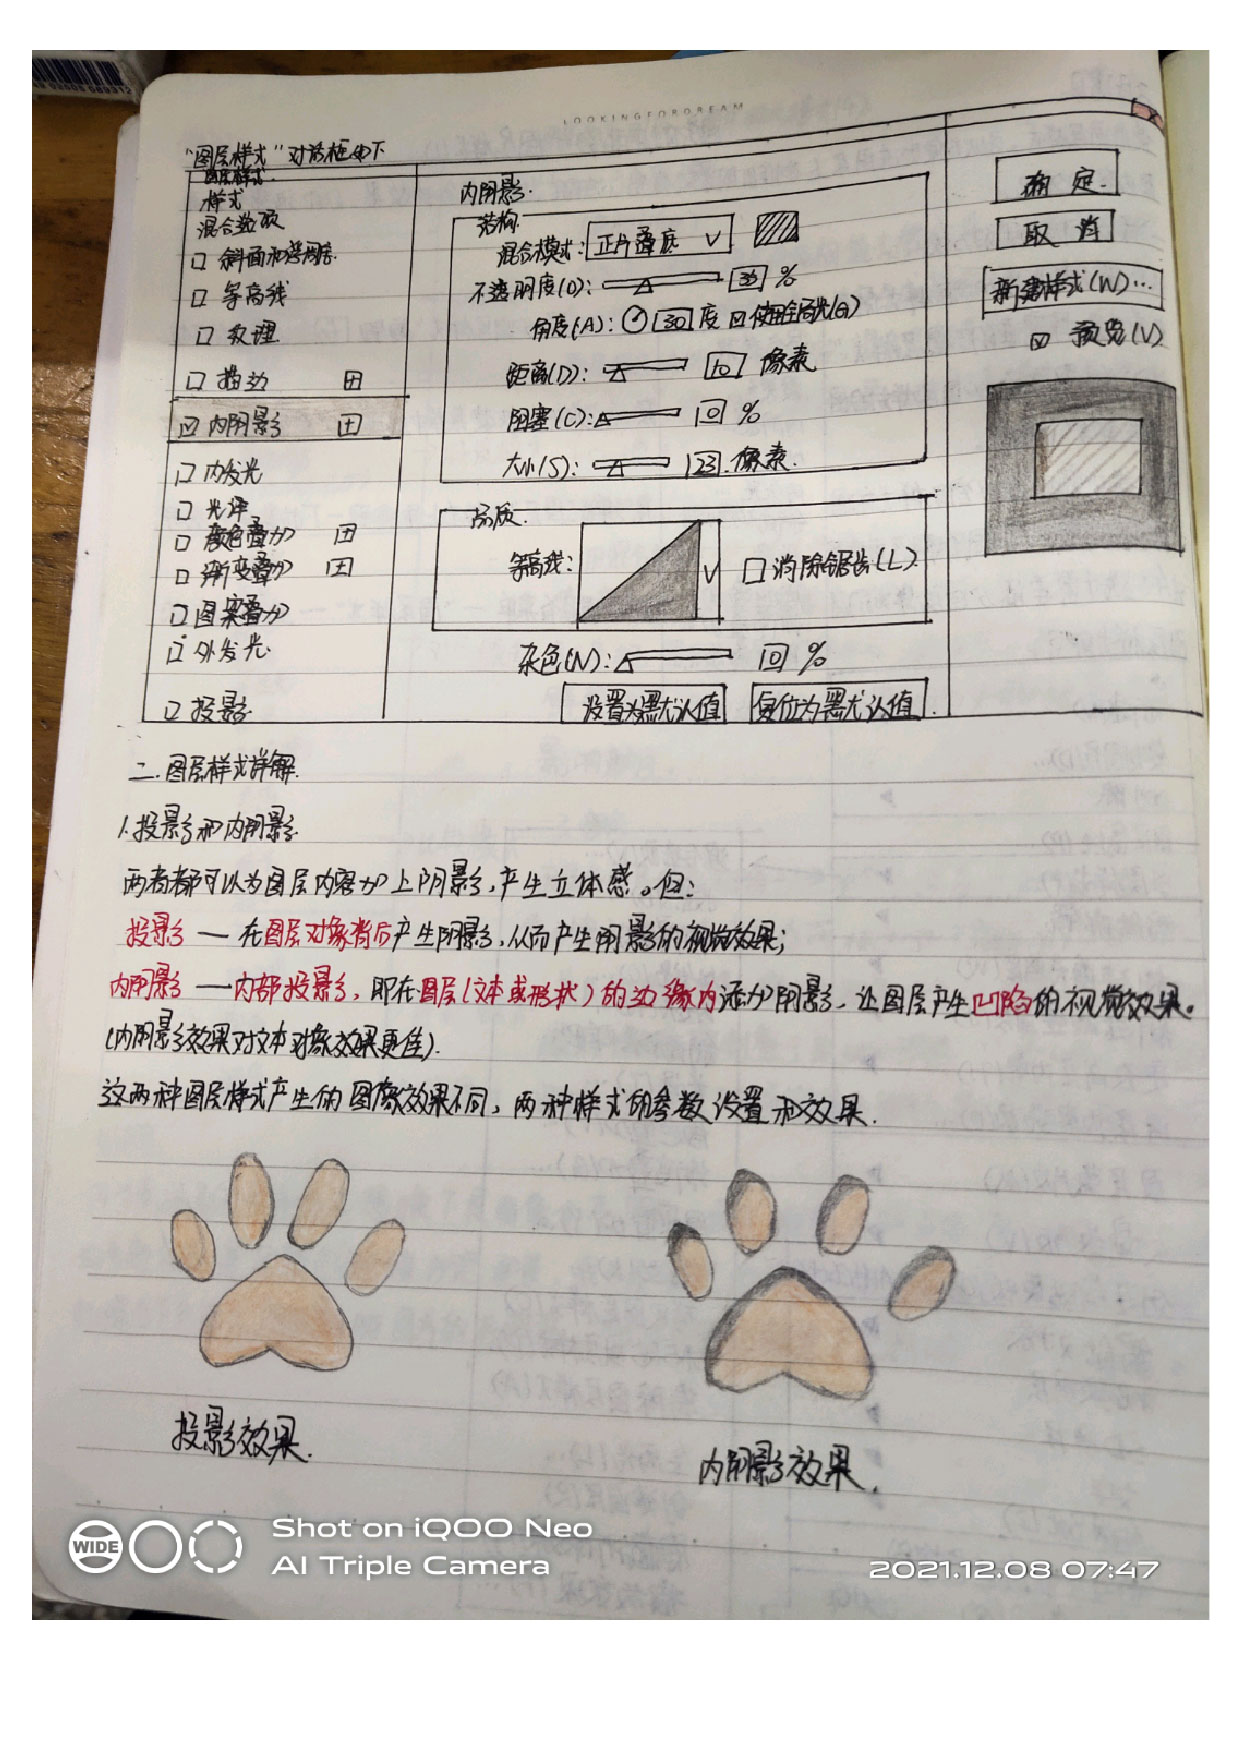 LOOKINGFORDREAM
"图层样式"对话框如下
图层样式
样式
混合选项
斜面和浮雕
等高线
纹理
描边
内阴影
内发光
光泽
颜色叠加
渐变叠加
图案叠加
外发光
投影
内阴影
结构
混合模式: 正片叠底
不透明度(O): %
角度(A): 30 度 使用全局光(G)
距离(D): 10 像素
阻塞(C): 0 %
大小(S): 23 像素
品质
等高线: 消除锯齿(L)
杂色(N): 0 %
设置为默认值 复位为默认值
确定
取消
新建样式(W)…
预览(V)
二.图层样式详解.
1.投影和内阴影
两者都可以为图层内容加上阴影,产生立体感。但:
投影 — 在图层对象背后产生阴影,从而产生阴影的视觉效果;
内阴影 — 内部投影,即在图层(文本或形状)的边缘内添加阴影,让图层产生凹陷的视觉效果。
(内阴影效果对文本对象效果更佳).
这两种图层样式产生的图像效果不同,两种样式的参数设置和效果.
投影效果.
内阴影效果.
WIDE
Shot on iQOO Neo
AI Triple Camera
2021.12.08 07:47